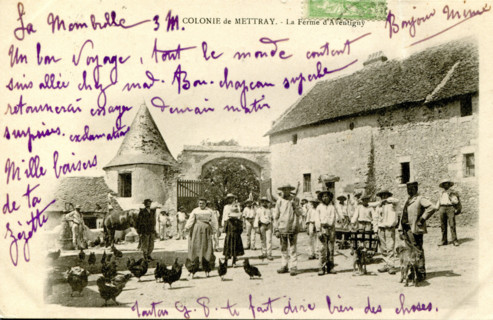 La Membrolle 3 M.
COLONIE de METTRAY. - La Ferme d'Aventigny
Bonjour Mémé
Un bon Voyage, tout le monde content
suis allée chez mad. Bou. chapeau superbe
retournerai essayer demain matin
surprises. exclamation
Mille baisers
de ta
Zézotte
Tantan G. P. te fait dire bien des choses.